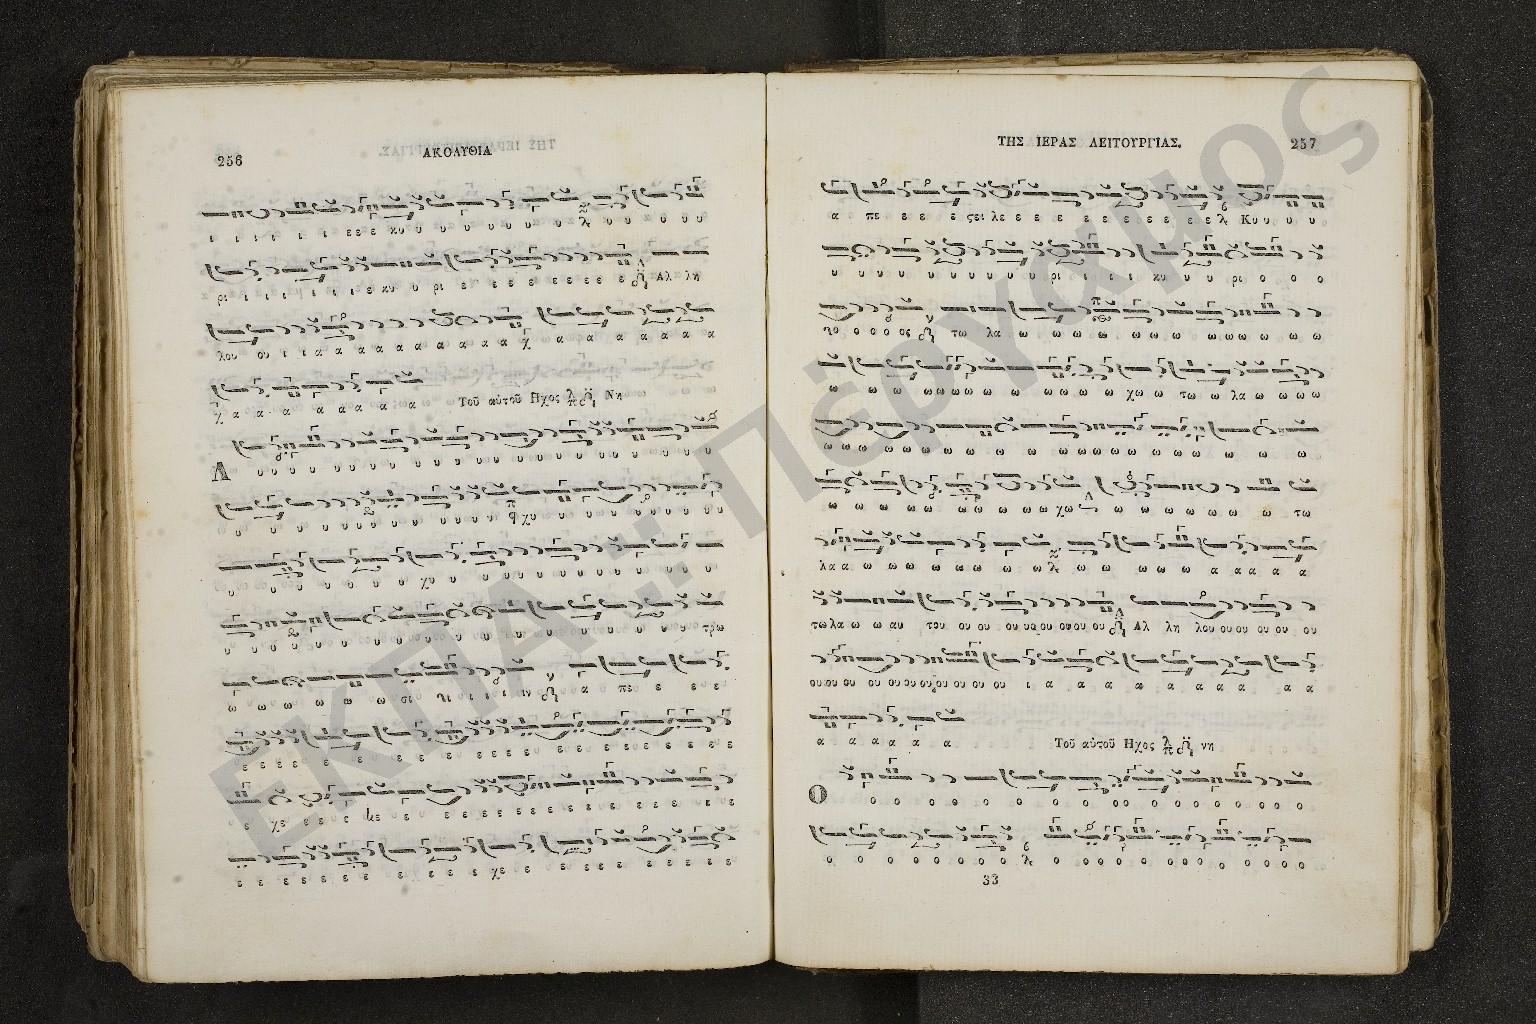 256
ΑΚΟΛΥΘΙΑ
ι ι ι ι ι ι εε ε κυ υ υ υ υ υ υ υ υ υ υ υ υ υ
ρι ι ι ι ι ι ι ε κυ υ ρι ε ε ε ε ε ε ε ε ε Αλ λη
λου ου ι ι α α α α α α α α α α α α α α α α α α α
χ α α α α α α α α
Τοῦ αὐτοῦ Ηχος Νη
Λ υ υ υ υ υ υ υ υ υ υ υ υ υ υ υ υ υ υ υ υ υ υ υ
υ υ υ υ υ υ υ υ υ υ υ υ υ χυ υ υ υ υ υ υ υ υ υ υ
υ υ υ υ υ υ χυ υ υ υ υ υ υ υ υ υ υ υ υ
υ υ υ υ υ υ υ υ υ υ υ υ υ υ υ υ υ υ υ τρω
ω ω ω ω ω ω σι ηι ι ι ι ιν α πε ε ε ε
ε ε ε ε ε ε ε ε ε ε ε ε ε ε ε ε ε ε ε ε ε ε
ε χε ε ε ε με ε ε ε ε ε ε ε ε ε ε ε ε ε ε
ε ε ε ε ε ε ε ε ε ε ε χε ε ε ε ε ε ε ε ε ε ε
ΤΗΣ ΙΕΡΑΣ ΛΕΙΤΟΥΡΓΙΑΣ.
257
α πε ε ε ε ςει λε ε ε ε ε ε ε ε ε ε ε Κυ υ υ υ
υ υ υ υ υ υ υ υ υ υ υ ρι ι ι ι κυ υ υ ρι ο ο ο
ηο ο ο ο ο ος τω λα ω ω ω ω ω ω ω ω ω ω ω ω ω ω ω
ω ω ω ω ω ω ω ω ω ω ω ω ω χω ω τω ω λα ω ω ω ω
ω ω ω ω ω ω ω ω ω ω ω ω ω ω ω ω ω ω ω ω ω ω
ω ω ω ω ω ω ω ω ω ω ω χω ω ω ω ω ω ω ω ω τω
λα α ω ω ω ω ω ω ω ω ω ω ω ω ω α α α α α
τω λα ω ω αυ του ου ου ου ου ου ου ου ου Αλ λη λου ου ου ου ου ου
ου ου ου ου ου ου ου ου ου ου ου ου ι α α α α α α α α α α α
α α α α α α
Τοῦ αὐτοῦ Ηχος νη
Ο ο ο ο ο ο ο ο ο ο ο ο ο ο ο ο ο ο
ο ο ο ο ο ο ο ο ο ο ο ο ο ο ο ο ο ο ο ο ο
33
ΕΚΠΑ :: Πέργαμος